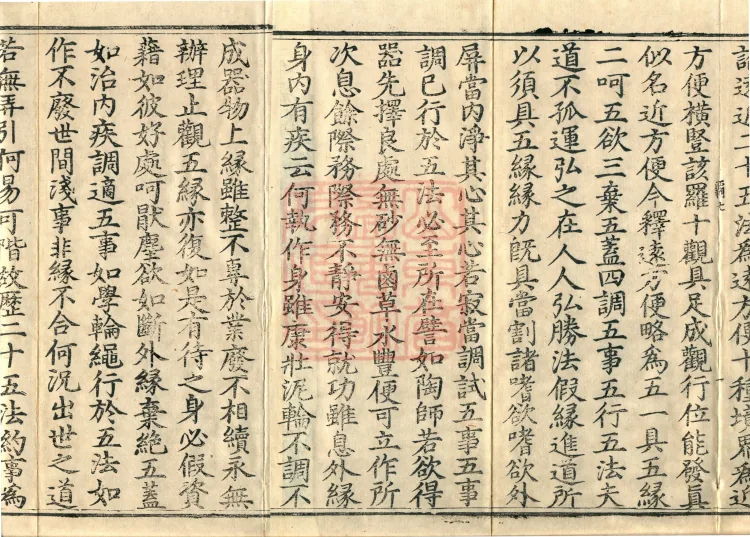 遠近二十五法為遠方便十種境界為近
方便橫豎該羅十觀具足成觀行位能發真
似名近方便今釋遠方便略為五一具五緣
二呵五欲三棄五蓋四調五事五行五法夫
道不孤運弘之在人人弘勝法假緣進道所
以須具五緣緣力既具當割諸嗜欲嗜欲外
屏當內淨其心其心若寂當調試五事五事
調已行於五法必至所在譬如陶師若欲得
器先擇良處無砂無鹵草水豐便可立作所
次息餘際務際務不靜安得就功雖息外緣
身內有疾云何執作身雖康壯泥輪不調不
成器物上緣雖整不專於業廢不相續永無
辦理止觀五緣亦復如是有待之身必假資
藉如彼好處呵猒塵欲如斷外緣棄絕五蓋
如治內疾調適五事如學輪繩行於五法如
作不廢世間淺事非緣不合何況出世之道
若無弄引何易可階故歷二十五法約事為